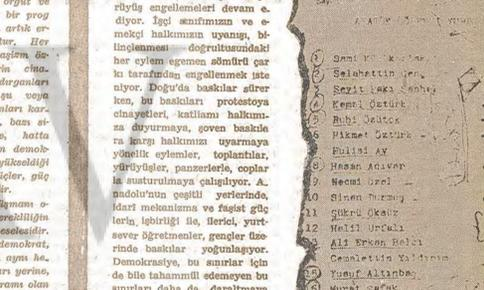 örgüt ve
bir prog
artık er-
tur. Her
aşizm öz-
rin cina-
dırganları
şu veya
nları kar-
bazı si-
e, hatta
n demok-
yükseldiği
içler, güç
ir.
üşmanı o-
erekliliğin
eselesidir.
demokrat,
aynı he-
arı yerine,
ramı olan
rüyüş engellemeleri devam e-
diyor. İşçi sınıfımızın ve e-
mekçi halkımızın uyanışı, bi-
linçlenmesi doğrultusundaki
her eylem egemen sömürü çar
kı tarafından engellenmek iste
niyor. Doğu'da baskılar sürer
ken, bu baskıları protestoya
cinayetleri, katliamı halkımı-
za duyurmaya, şoven baskıla
ra karşı halkımızı uyarmaya
yönelik eylemler, toplantılar,
yürüyüşler, panzerlerle, coplar
la susturulmaya çalışılıyor. A_
nadolu'nun çeşitli yerlerinde,
idari mekanizma ve faşist güç
lerin işbirliği ile, ilerici, yurt-
sever öğretmenler, gençler üze-
rinde baskılar yoğunlaşıyor.
Demokrasiye, bu sınırlar için
de bile tahammül edemeyen bu
sınırları daha da daraltmaya
1 Sami
2 Selahattin
3 Seyit
4 Kemal Öztürk
5 Ruhi Öztürk
6 Hikmet Öztürk
Hulisi Ay
8 Hasan Adıvar
9 Necmi Özel
10 Sinan
11 Şükrü Öksüz
12 Halil Urfalı
Ali Erkan Belci
Cemalettin Yıldırım
15 Yusuf Altınbaş
Murat